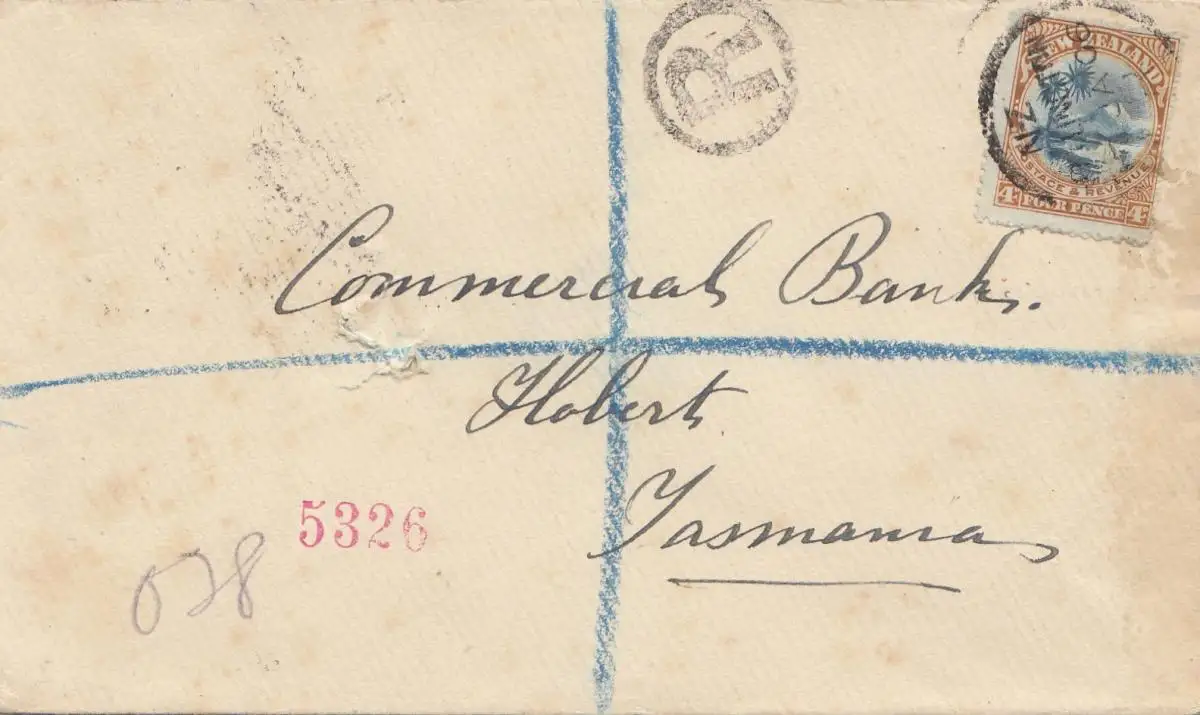 R
NEW ZEALAND
POSTAGE & REVENUE
4d FOUR PENCE 4d
N.Z
Commercial Bank.
Hobart
Tasmania
5326